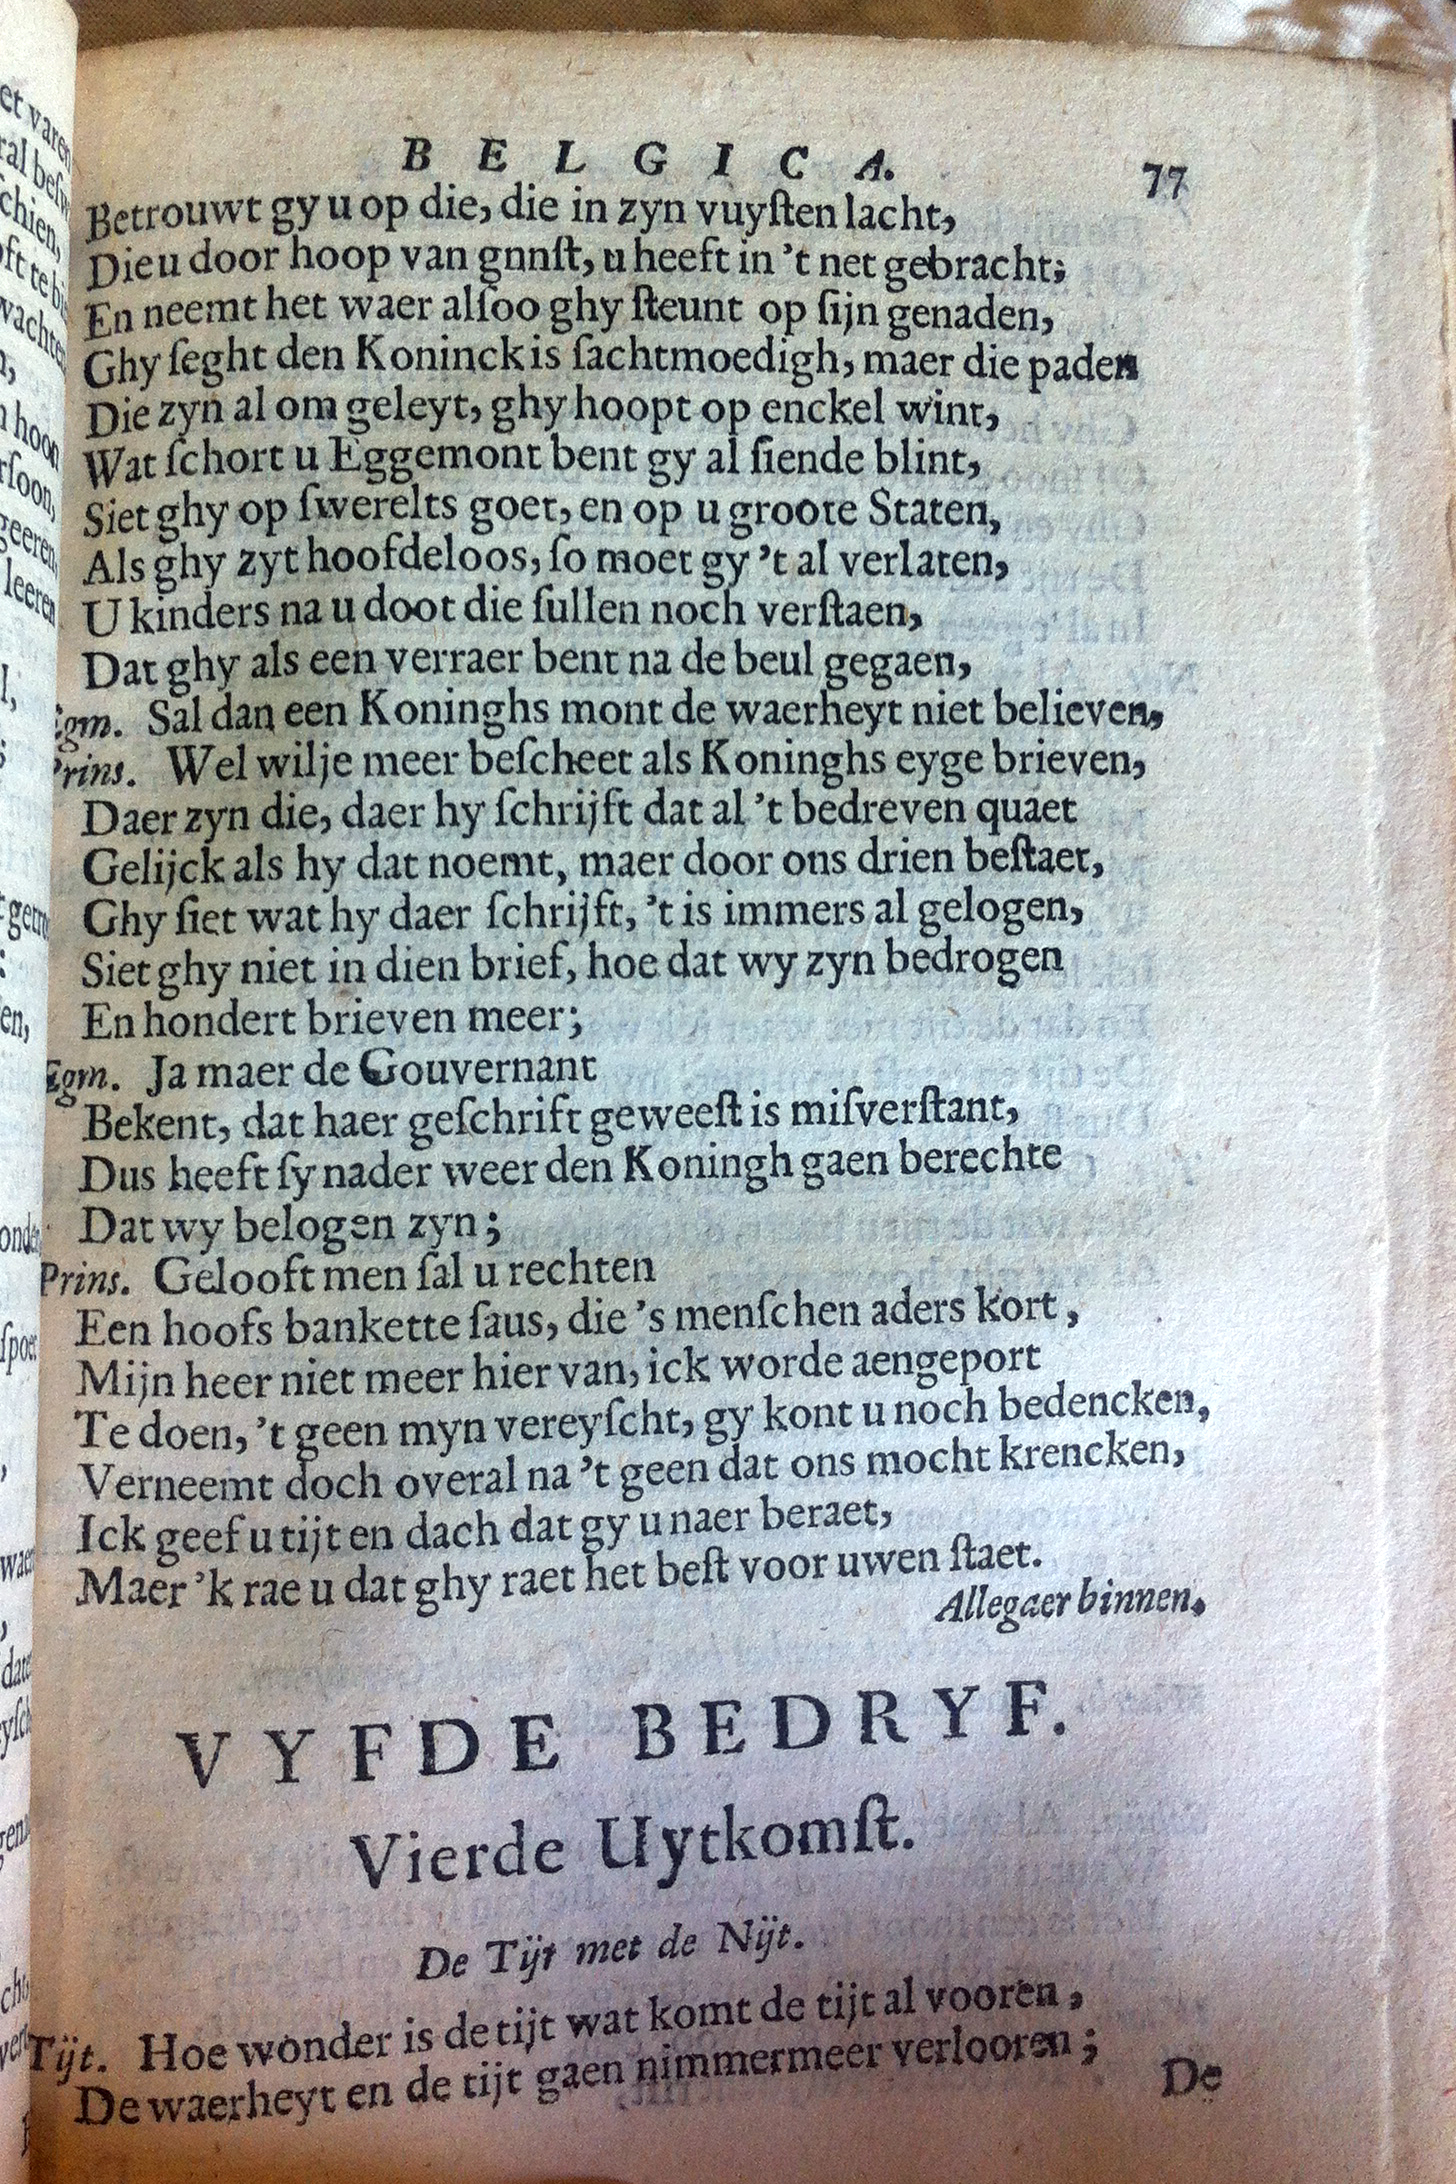 BELGICA. 77
Betrouwt gy u op die, die in zyn vuyſten lacht,
Die u door hoop van gnnſt, u heeft in 't net gebracht;
En neemt het waer alſoo ghy ſteunt op ſijn genaden,
Ghy ſeght den Koninck is ſachtmoedigh, maer die paden
Die zyn al om geleyt, ghy hoopt op enckel wint,
Wat ſchort u Eggemont bent gy al ſiende blint,
Siet ghy op ſwerelts goet, en op u groote Staten,
Als ghy zyt hoofdeloos, ſo moet gy 't al verlaten,
U kinders na u doot die ſullen noch verſtaen,
Dat ghy als een verraer bent na de beul gegaen,
Egm. Sal dan een Koninghs mont de waerheyt niet believen,
Prins. Wel wilje meer beſcheet als Koninghs eyge brieven,
Daer zyn die, daer hy ſchrijft dat al 't bedreven quaet
Gelijck als hy dat noemt, maer door ons drien beſtaet,
Ghy ſiet wat hy daer ſchrijft, 't is immers al gelogen,
Siet ghy niet in dien brief, hoe dat wy zyn bedrogen
En hondert brieven meer;
Egm. Ja maer de Gouvernant
Bekent, dat haer geſchrift geweeſt is miſverſtant,
Dus heeft ſy nader weer den Koningh gaen berechte
Dat wy belogen zyn;
Prins. Gelooft men ſal u rechten
Een hoofs bankette ſaus, die 's menſchen aders kort,
Mijn heer niet meer hier van, ick worde aengeport
Te doen, 't geen myn vereyſcht, gy kont u noch bedencken,
Verneemt doch overal na 't geen dat ons mocht krencken,
Ick geef u tijt en dach dat gy u naer beraet,
Maer 'k rae u dat ghy raet het beſt voor uwen ſtaet.
Allegaer binnen.
VYFDE BEDRYF.
Vierde Uytkomſt.
De Tijt met de Nijt.
Tijt. Hoe wonder is de tijt wat komt de tijt al vooren,
De waerheyt en de tijt gaen nimmermeer verlooren;
De